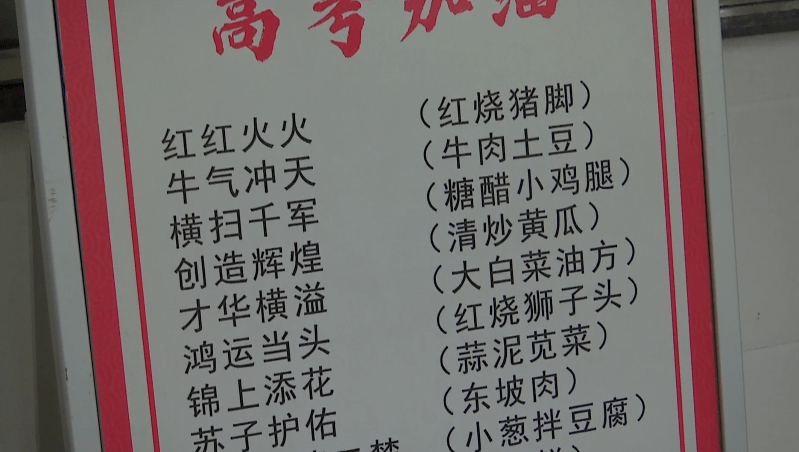 高考加油
红红火火 （红烧猪脚）
牛气冲天 （牛肉土豆）
横扫千军 （糖醋小鸡腿）
创造辉煌 （清炒黄瓜）
才华横溢 （大白菜油方）
鸿运当头 （红烧狮子头）
锦上添花 （蒜泥苋菜）
苏子护佑 （东坡肉）
（小葱拌豆腐）